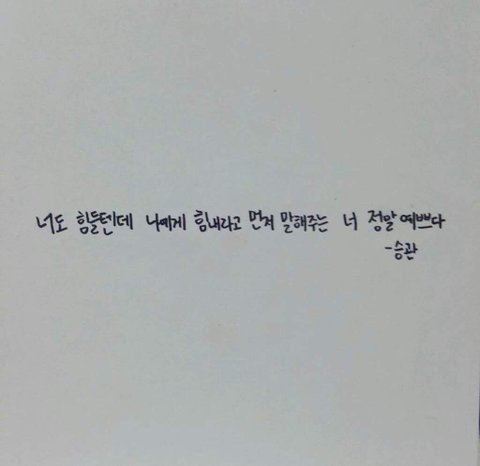 너도 힘들텐데 나에게 힘내라고 먼저 말해주는 너 정말 예쁘다
-승관